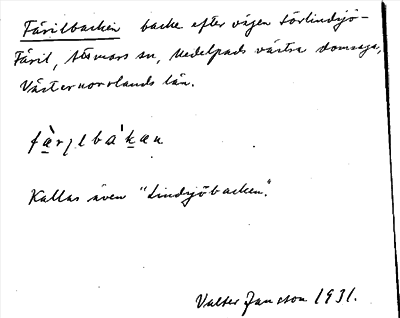 Färilbacken backe efter vägen Sörlindsjö-
Färil, Attmars sn, Medelpads västra domsaga,
Västernorrlands län.
Kallas även "Lindsjöbacken".
Valter Jansson 1931.